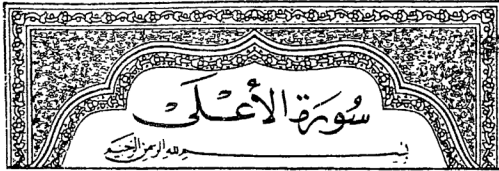 سُورَة الأَعْلَىٰ
بِسْمِ اللهِ الرَّحْمَنِ الرَّحِيمِ